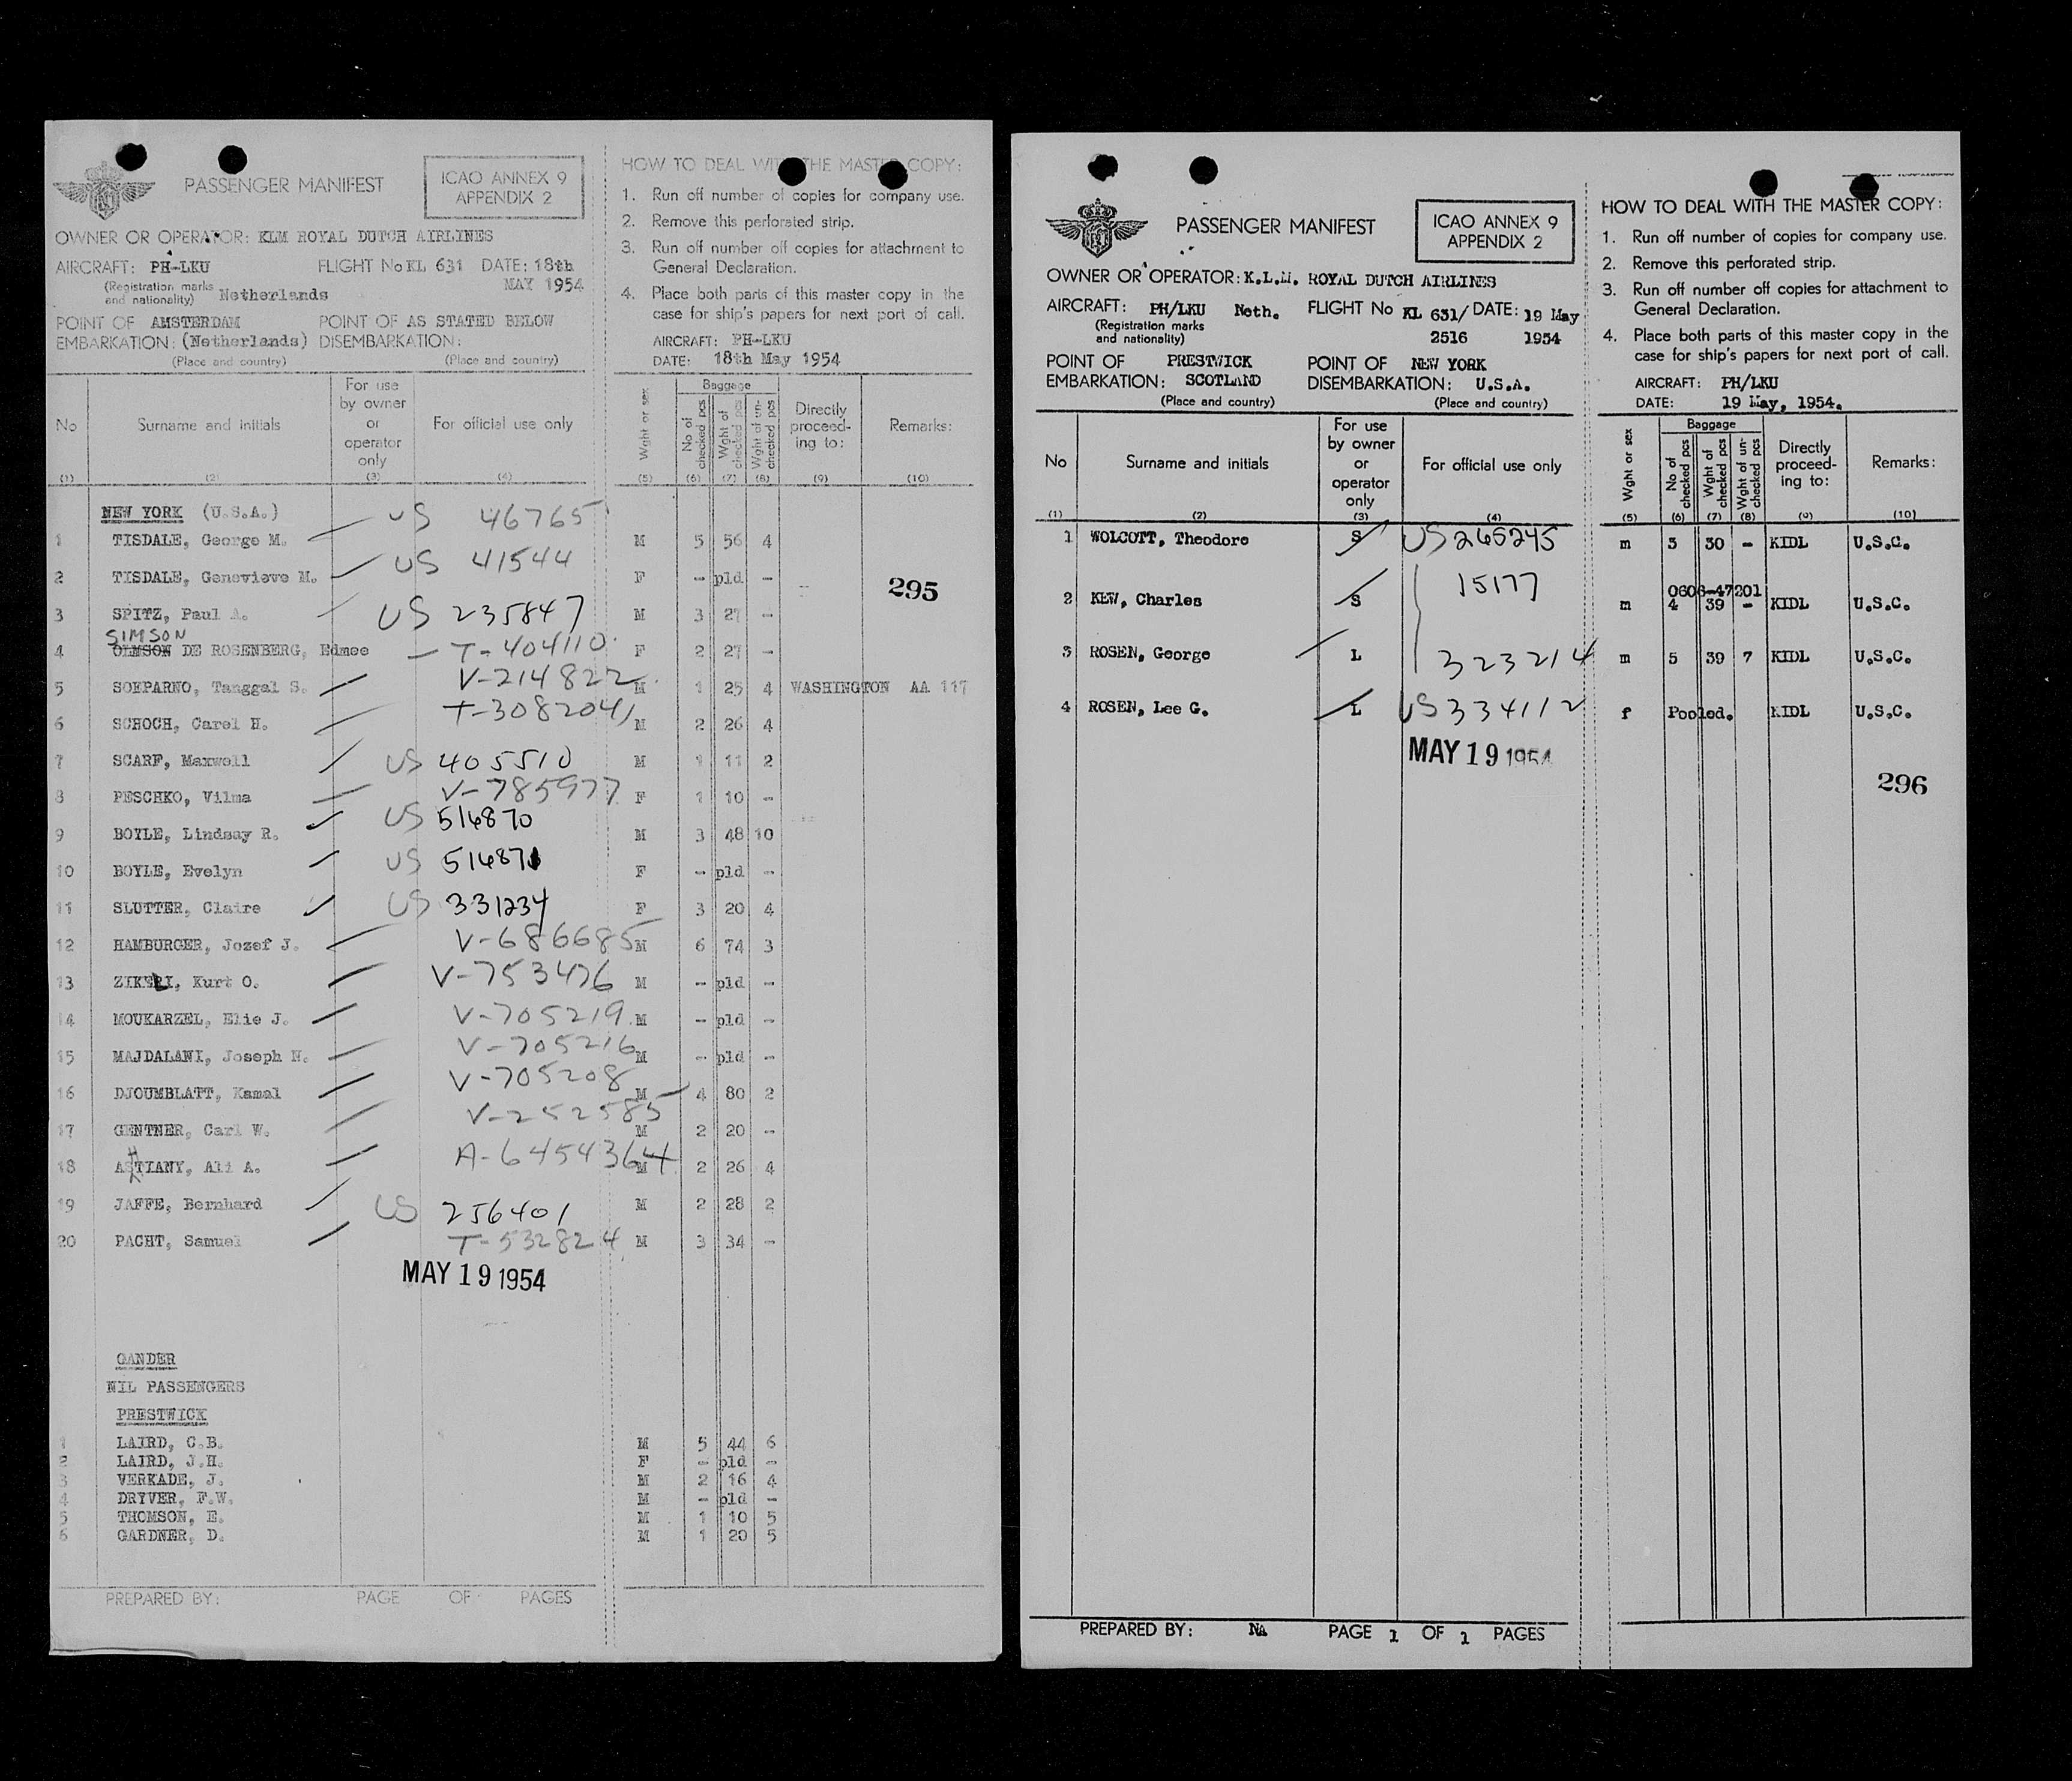 PASSENGER MANIFEST
ICAO ANNEX 9
APPENDIX 2
OWNER OR OPERATOR: KLM ROYAL DUTCH AIRLINES
AIRCRAFT: PH-LKU FLIGHT No KL 631 DATE: 18th
MAY 1954
(Registration marks
and nationality) Netherlands
POINT OF AMSTERDAM POINT OF AS STATED BELOW
EMBARKATION: (Netherlands) DISEMBARKATION:
(Place and country) (Place and country)
HOW TO DEAL WITH THE MASTER COPY:
1. Run off number of copies for company use.
2. Remove this perforated strip.
3. Run off number off copies for attachment to
General Declaration.
4. Place both parts of this master copy in the
case for ship's papers for next port of call.
AIRCRAFT: PH-LKU
DATE: 18th May 1954
No Surname and initials For use by owner or operator only For official use only Wght or sex Baggage No of checked pcs Wght of checked pcs Wght of un-checked pcs Directly proceed-ing to: Remarks:
(1) (2) (3) (4) (5) (6) (7) (8) (9) (10)
NEW YORK (U.S.A.)
1 TISDALE, George M. US 46765 M 5 56 4
2 TISDALE, Genevieve M. US 41544 F - pld -
295
3 SPITZ, Paul A. US 235847 M 3 27 -
SIMSON
4 OLMSON DE ROSENBERG, Edmee T-404110 F 2 27 -
5 SOEPARNO, Tanggal S. V-214822 M 1 25 4 WASHINGTON AA 117
6 SCHOCH, Carel H. T-3082041 M 2 26 4
7 SCARF, Maxwell US 405510 M 1 11 2
8 PESCHKO, Vilma V-785977 F 1 10 -
9 BOYLE, Lindsay R. US 514870 M 3 48 10
10 BOYLE, Evelyn US 514871 F - pld -
11 SLUTTER, Claire US 331234 F 3 20 4
12 HAMBURGER, Jozef J. V-686685 M 6 74 3
13 ZIKELI, Kurt O. V-753476 M - pld -
14 MOUKARZEL, Elie J. V-705219 M - pld -
15 MAJDALANI, Joseph N. V-705216 M - pld -
16 DJOUMBLATT, Kamal V-705208 M 4 80 2
17 GENTNER, Carl W. V-252585 M 2 20 -
18 ASHTIANY, Ali A. A-6454364 M 2 26 4
19 JAFFE, Bernhard US 256401 M 2 28 2
20 PACHT, Samuel T-532824 M 3 34 -
MAY 19 1954
GANDER
NIL PASSENGERS
PRESTWICK
1 LAIRD, C.B. M 5 44 6
2 LAIRD, J.H. F - pld -
3 VERKADE, J. M 2 16 4
4 DRYVER, F.W. M - pld -
5 THOMSON, E. M 1 10 5
6 GARDNER, D. M 1 20 5
PREPARED BY: PAGE OF PAGES
PASSENGER MANIFEST
ICAO ANNEX 9
APPENDIX 2
OWNER OR OPERATOR: K.L.M. ROYAL DUTCH AIRLINES
AIRCRAFT: PH/LKU Neth. FLIGHT No KL 631/ DATE: 19 May
(Registration marks
and nationality) 2516 1954
POINT OF PRESTWICK POINT OF NEW YORK
EMBARKATION: SCOTLAND DISEMBARKATION: U.S.A.
(Place and country) (Place and country)
HOW TO DEAL WITH THE MASTER COPY:
1. Run off number of copies for company use.
2. Remove this perforated strip.
3. Run off number off copies for attachment to
General Declaration.
4. Place both parts of this master copy in the
case for ship's papers for next port of call.
AIRCRAFT: PH/LKU
DATE: 19 May, 1954.
No Surname and initials For use by owner or operator only For official use only Wght or sex Baggage No of checked pcs Wght of checked pcs Wght of un-checked pcs Directly proceed-ing to: Remarks:
(1) (2) (3) (4) (5) (6) (7) (8) (9) (10)
1 WOLCOTT, Theodore S US 265245 m 3 30 - KIDL U.S.C.
0606-47201
2 KEW, Charles S 15177 m 4 39 - KIDL U.S.C.
3 ROSEN, George L 323214 m 5 39 7 KIDL U.S.C.
4 ROSEN, Lee G. L US 334112 f Pooled. KIDL U.S.C.
MAY 19 1954
296
PREPARED BY: NA PAGE 1 OF 1 PAGES